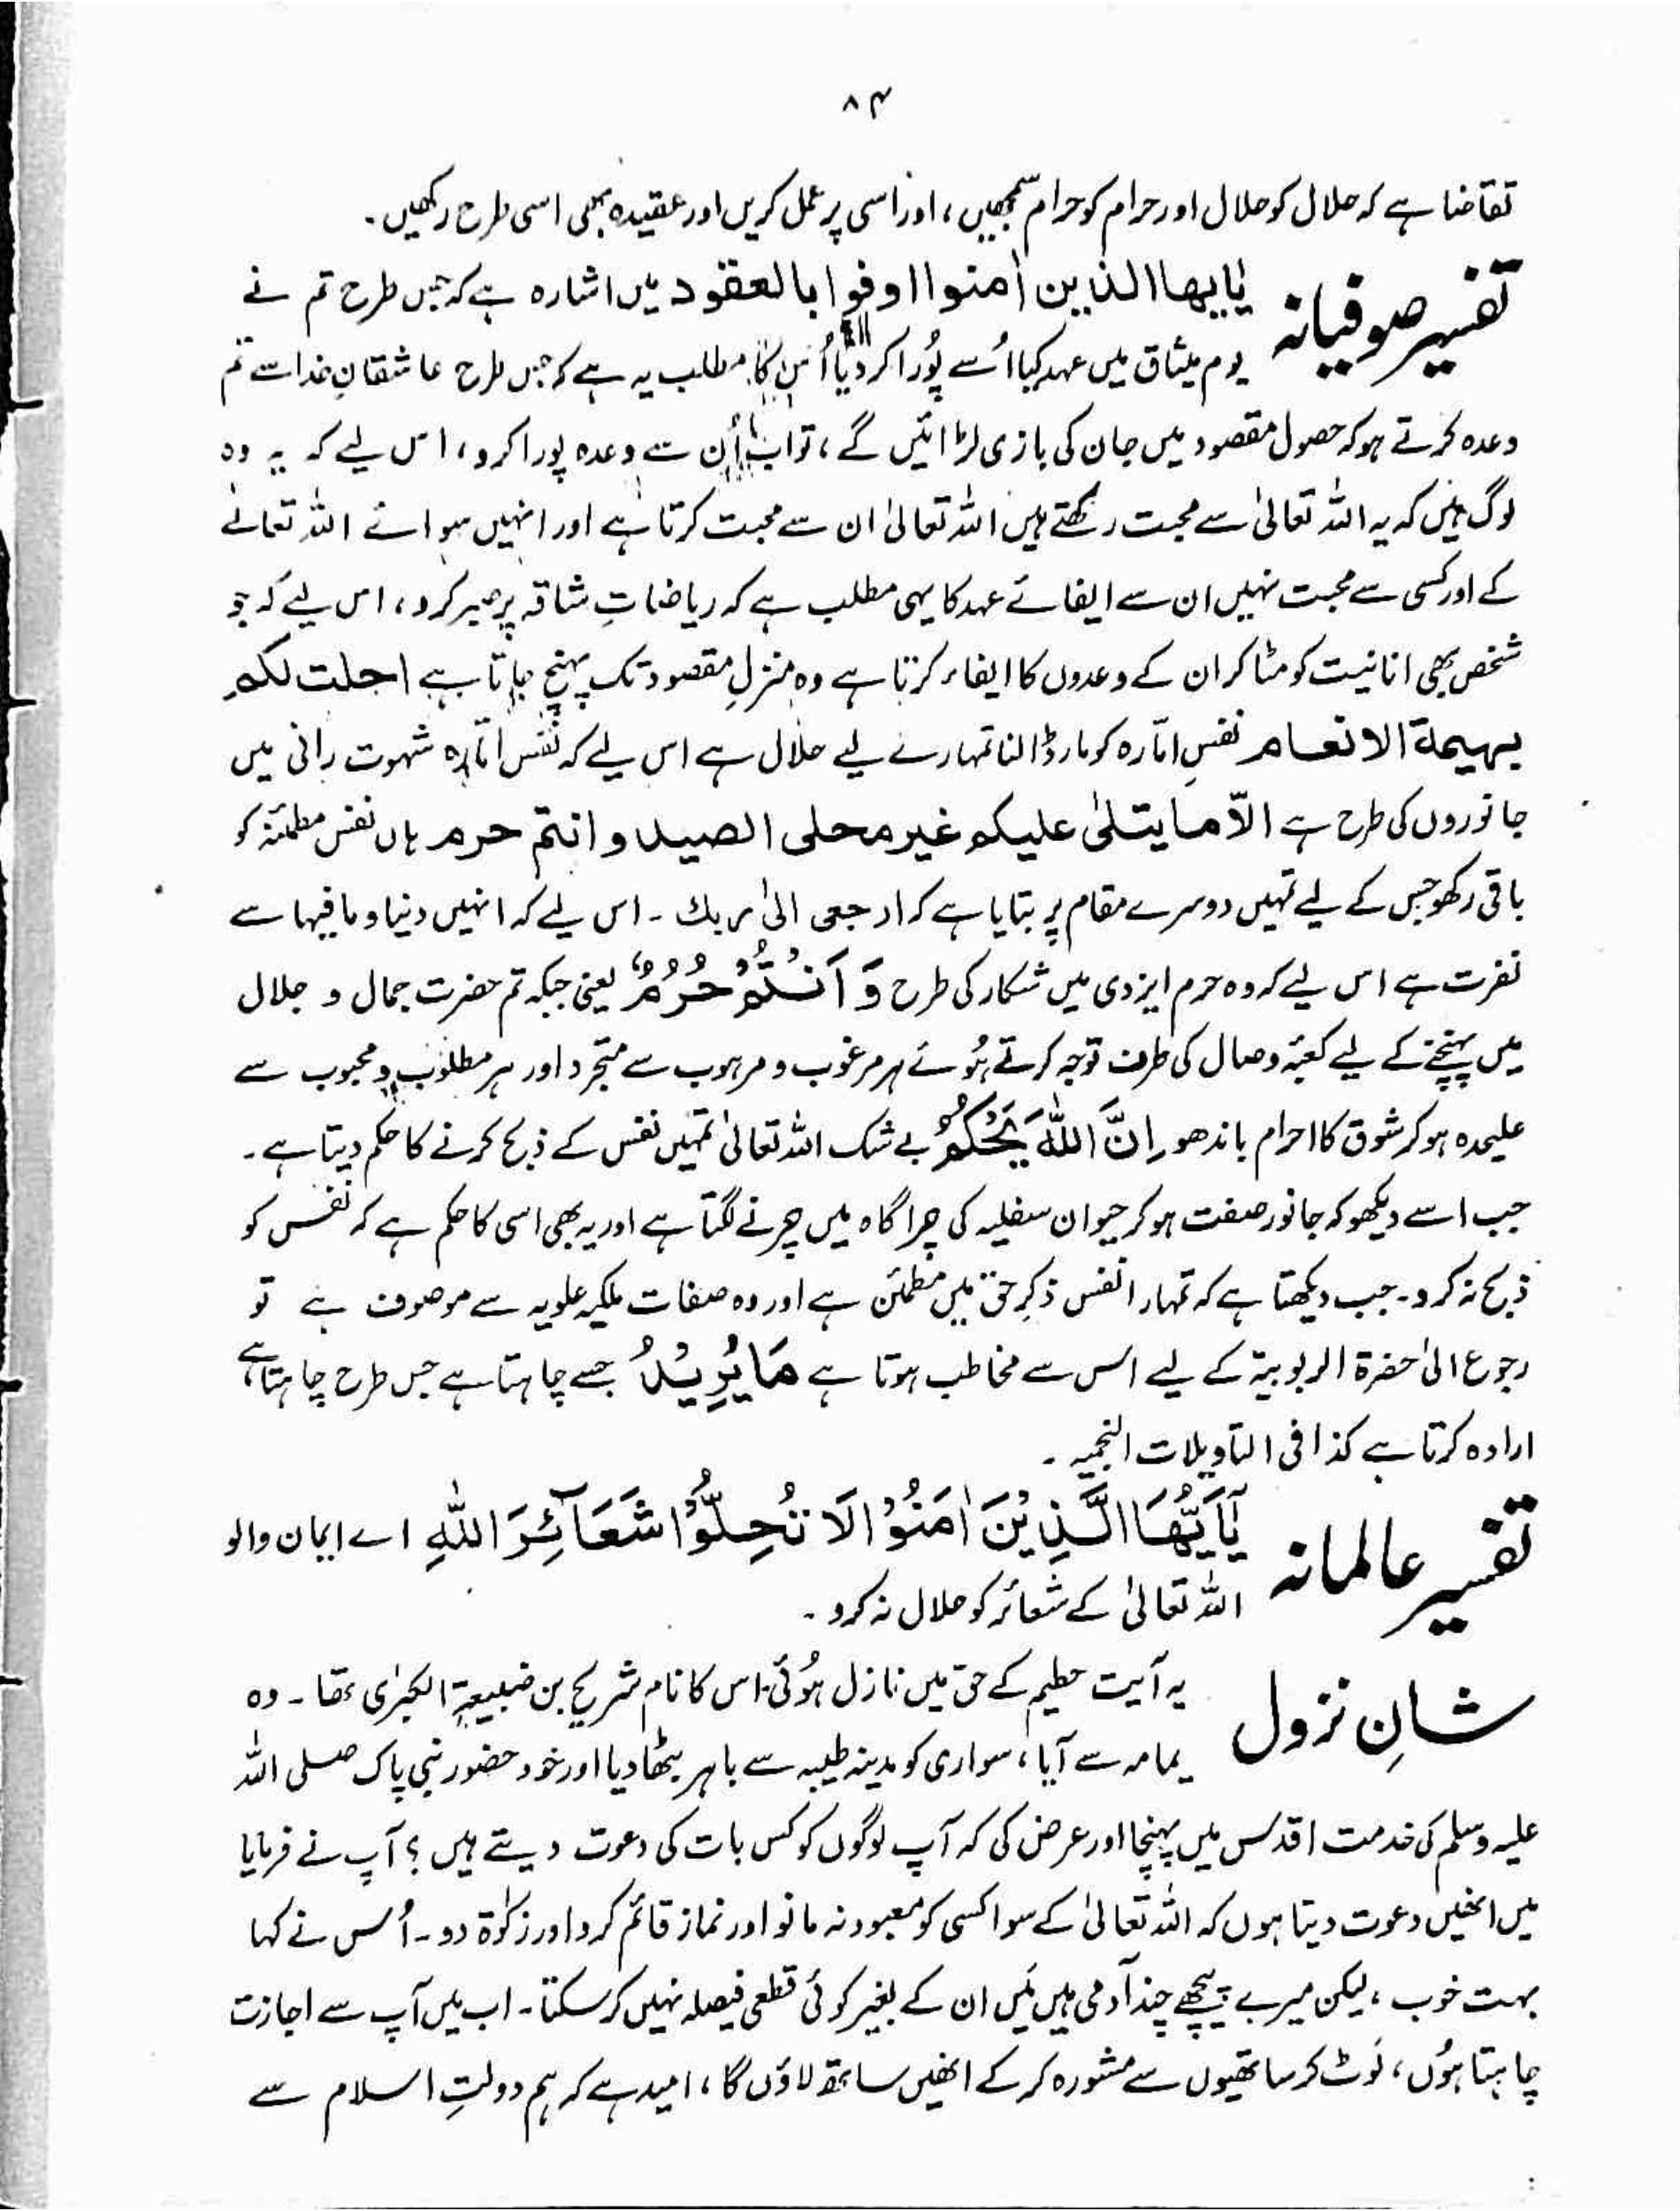 ۸۴
تقاضا ہے کہ حلال کو حلال اور حرام کو حرام سمجھیں، اور اسی پر عمل کریں اور عقیدہ بھی اسی طرح رکھیں۔
تفسیر صوفیانہ
یٰایھا الذین اٰمنوا اوفوا بالعقود میں اشارہ ہے کہ جس طرح تم نے
یوم میثاق میں عہد کیا اُسے پُورا کر دیا اُس کا مطلب یہ ہے کہ جس طرح عاشقانِ خدا سے تم
وعدہ کرتے ہو کہ حصول مقصود میں جان کی بازی لڑائیں گے، تو اب اُن سے وعدہ پورا کرو، اس لیے کہ یہ وہ
لوگ ہیں کہ یہ اللہ تعالیٰ سے محبت رکھتے ہیں اللہ تعالیٰ ان سے محبت کرتا ہے اور انہیں سوائے اللہ تعالےٰ
کے اور کسی سے محبت نہیں ان سے ایفائے عہد کا یہی مطلب ہے کہ ریاضاتِ شاقہ پر صبر کرو، اس لیے کہ جو
شخص بھی انانیت کو مٹا کر ان کے وعدوں کا ایفاء کرتا ہے وہ منزلِ مقصود تک پہنچ جاتا ہے احلت لکم
بہیمۃ الانعام نفسِ امّارہ کو مار ڈالنا تمہارے لیے حلال ہے اس لیے کہ نفس امّارہ شہوت رانی میں
جانوروں کی طرح ہے الّا ما یتلیٰ علیکم غیر محلی الصید و انتم حرم ہاں نفس مطمئنہ کو
باقی رکھو جس کے لیے تمہیں دوسرے مقام پر بتایا ہے کہ ارجعی الیٰ ربك ۔ اس لیے کہ انہیں دنیا و مافیہا سے
نفرت ہے اس لیے کہ وہ حرم ایزدی میں شکار کی طرح وَ اَنْتُمْ حُرُمٌ یعنی جبکہ تم حضرت جمال و جلال
میں پہنچنے کے لیے کعبۂ وصال کی طرف توجہ کرتے ہُوئے ہر مرغوب و مرہوب سے متجرد اور ہر مطلوب و محبوب سے
علیحدہ ہو کر شوق کا احرام باندھو اِنَّ اللّٰهَ یَحْکُمُ بے شک اللہ تعالیٰ تمہیں نفس کے ذبح کرنے کا حکم دیتا ہے۔
جب اسے دیکھو کہ جانور صفت ہو کر حیوان سفلیہ کی چراگاہ میں چرنے لگتا ہے اور یہ بھی اسی کا حکم ہے کہ نفس کو
ذبح نہ کرو۔ جب دیکھتا ہے کہ تمہارا نفس ذکرِ حق میں مطمئن ہے اور وہ صفات ملکیہ علویہ سے موصوف ہے تو
رجوع الیٰ حضرۃ الربوبیۃ کے لیے اس سے مخاطب ہوتا ہے مَا یُرِیْدُ جسے چاہتا ہے جس طرح چاہتا ہے
ارادہ کرتا ہے کذا فی التاویلات النجمیہ ۔
تفسیر عالمانہ
یٰٓاَیُّهَا الَّذِیْنَ اٰمَنُوْا لَا تُحِلُّوْا شَعَآئِرَ اللّٰهِ اے ایمان والو
اللہ تعالیٰ کے شعائر کو حلال نہ کرو ۔
شانِ نزول
یہ آیت حطیم کے حق میں نازل ہُوئی۔ اس کا نام شریح بن ضبیعۃ الکبرٰی تھا ۔ وہ
یمامہ سے آیا، سواری کو مدینہ طیبہ سے باہر بٹھا دیا اور خود حضور نبی پاک صلی اللہ
علیہ وسلم کی خدمت اقدس میں پہنچا اور عرض کی کہ آپ لوگوں کو کس بات کی دعوت دیتے ہیں؟ آپ نے فرمایا
میں انھیں دعوت دیتا ہوں کہ اللہ تعالیٰ کے سوا کسی کو معبود نہ مانو اور نماز قائم کرو اور زکوٰۃ دو۔ اُس نے کہا
بہت خوب، لیکن میرے پیچھے چند آدمی ہیں مَیں ان کے بغیر کوئی قطعی فیصلہ نہیں کر سکتا۔ اب میں آپ سے اجازت
چاہتا ہُوں، لوٹ کر ساتھیوں سے مشورہ کر کے انھیں ساتھ لاؤں گا، امید ہے کہ ہم دولتِ اسلام سے